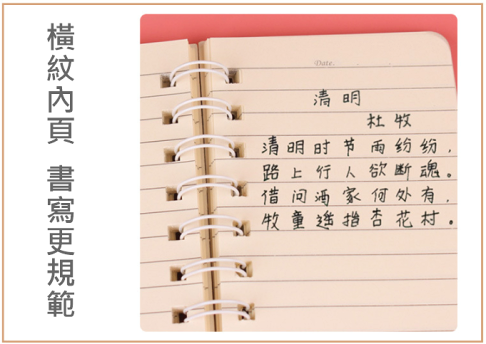 橫紋內頁 書寫更規範
Date.
清明
杜牧
清明时节雨纷纷，
路上行人欲断魂。
借问酒家何处有，
牧童遥指杏花村。